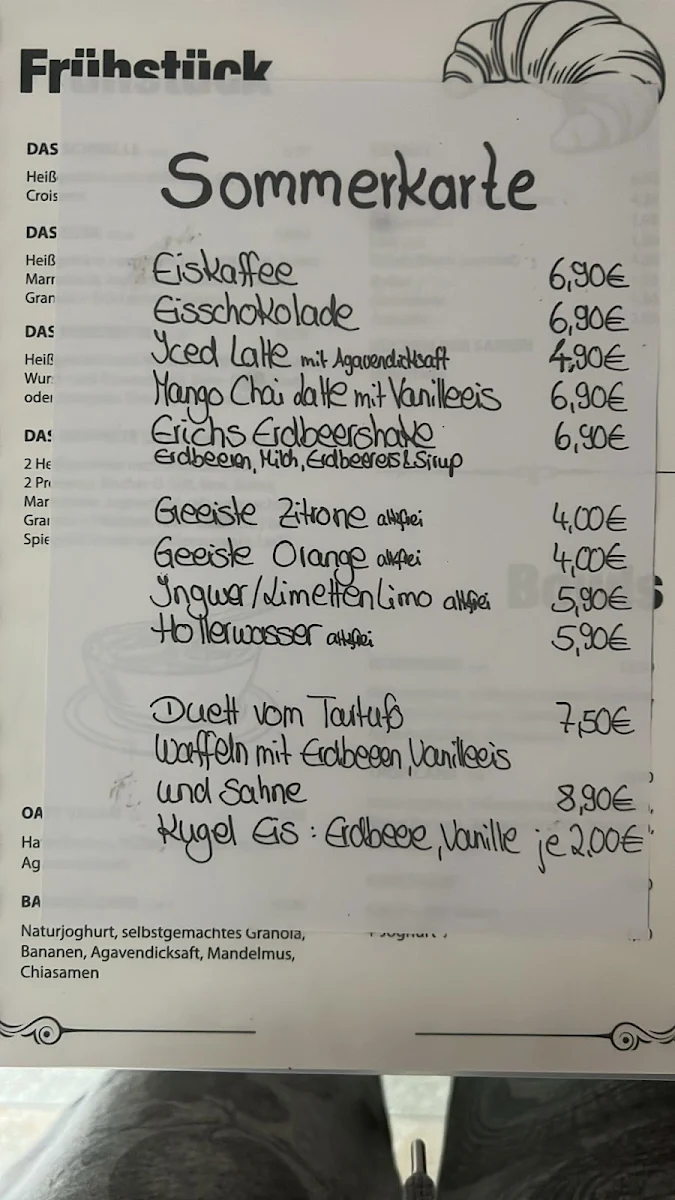 Frühstück
Sommerkarte
Eiskaffee 6,90€
Eisschokolade 6,90€
Iced Latte mit Agavendicksaft 4,90€
Mango Chai Latte mit Vanilleeis 6,90€
Erichs Erdbeershake 6,90€
Erdbeeren, Milch, Erdbeereis & Sirup
Geeiste Zitrone alkfrei 4,00€
Geeiste Orange alkfrei 4,00€
Ingwer/Limetten Limo alkfrei 5,90€
Hollerwasser alkfrei 5,90€
Duett vom Tartufo 7,50€
Waffeln mit Erdbeeren, Vanilleeis
und Sahne 8,90€
Kugel Eis: Erdbeere, Vanille je 2,00€
DAS
Heiß
Crois
DAS
Heiß
Marr
Gran
DAS
Heiß
Wur
oder
DAS
2 He
2 Pr
Mar
Gra
Spie
OA
Ha
Ag
BA
Naturjoghurt, selbstgemachtes Granola,
Bananen, Agavendicksaft, Mandelmus,
Chiasamen